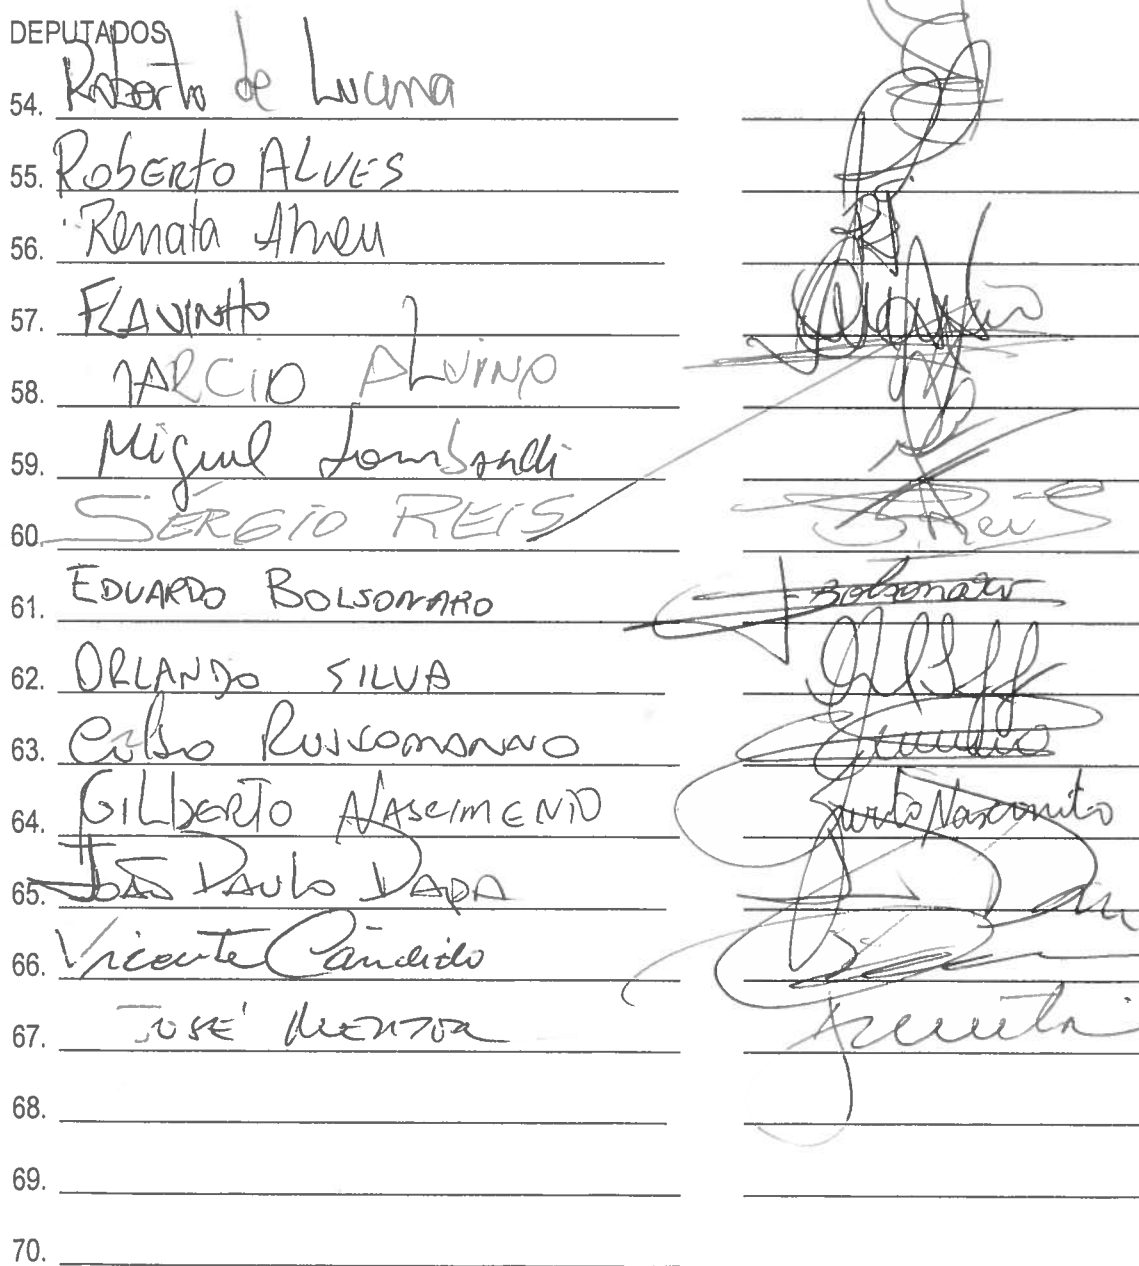 DEPUTADOS
54. Roberto de Lucena
55. Roberto ALVES
56. Renata Abreu
57. FLAVINHO
58. MARCIO ALVINO
59. Miguel Lombardi
60. SÉRGIO REIS SReis
61. EDUARDO BOLSONARO Bolsonaro
62. ORLANDO SILVA
63. Celso Russomanno
64. GILBERTO NASCIMENTO Nascimento
65. JOÃO PAULO PAPA
66. Vicente Cândido
67. JOSÉ MENTOR
68.
69.
70.